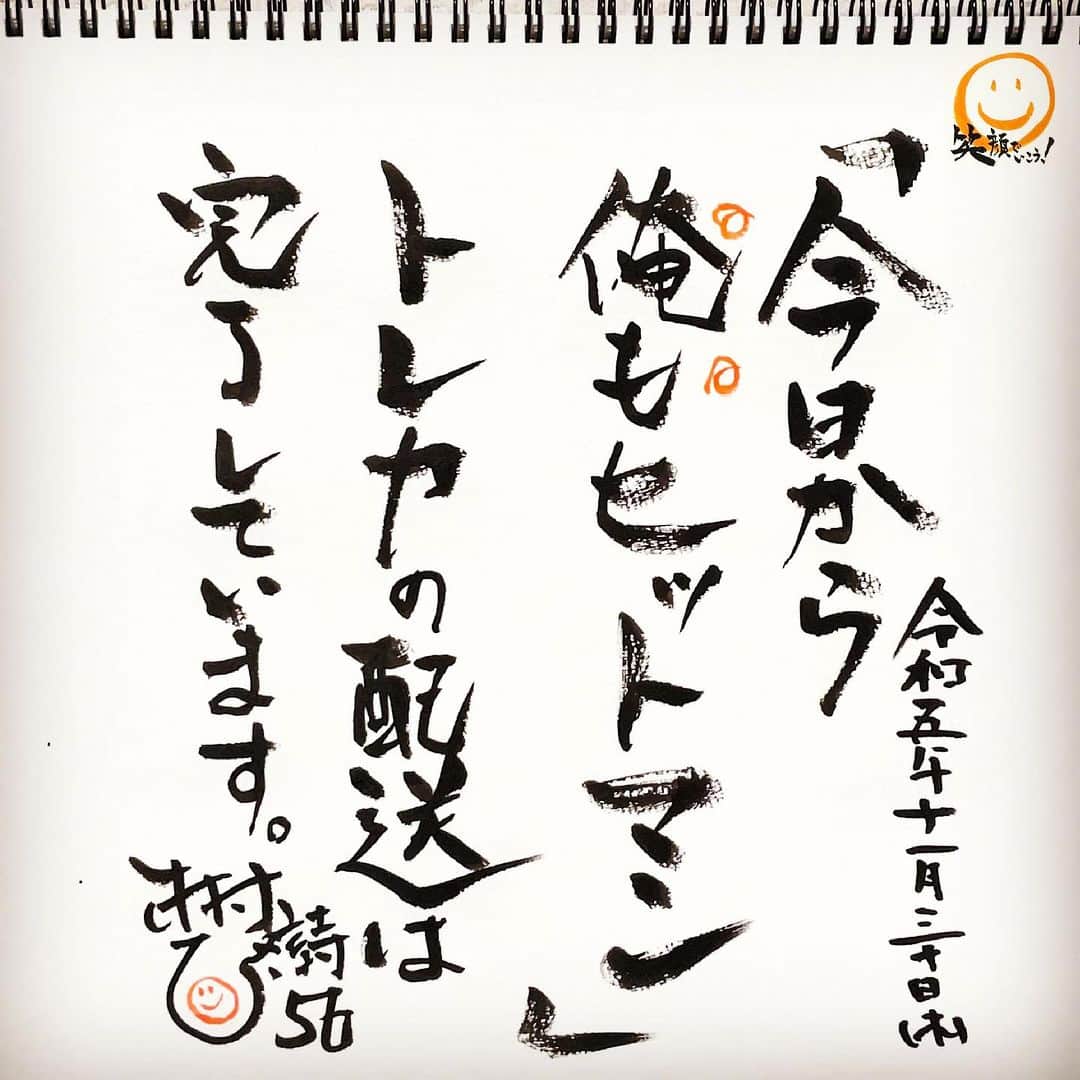 笑顔でいこう!
令和五年十一月三十日(木)
「今日から
俺もヒットマン」
トレカの配送は
完了しています。
56